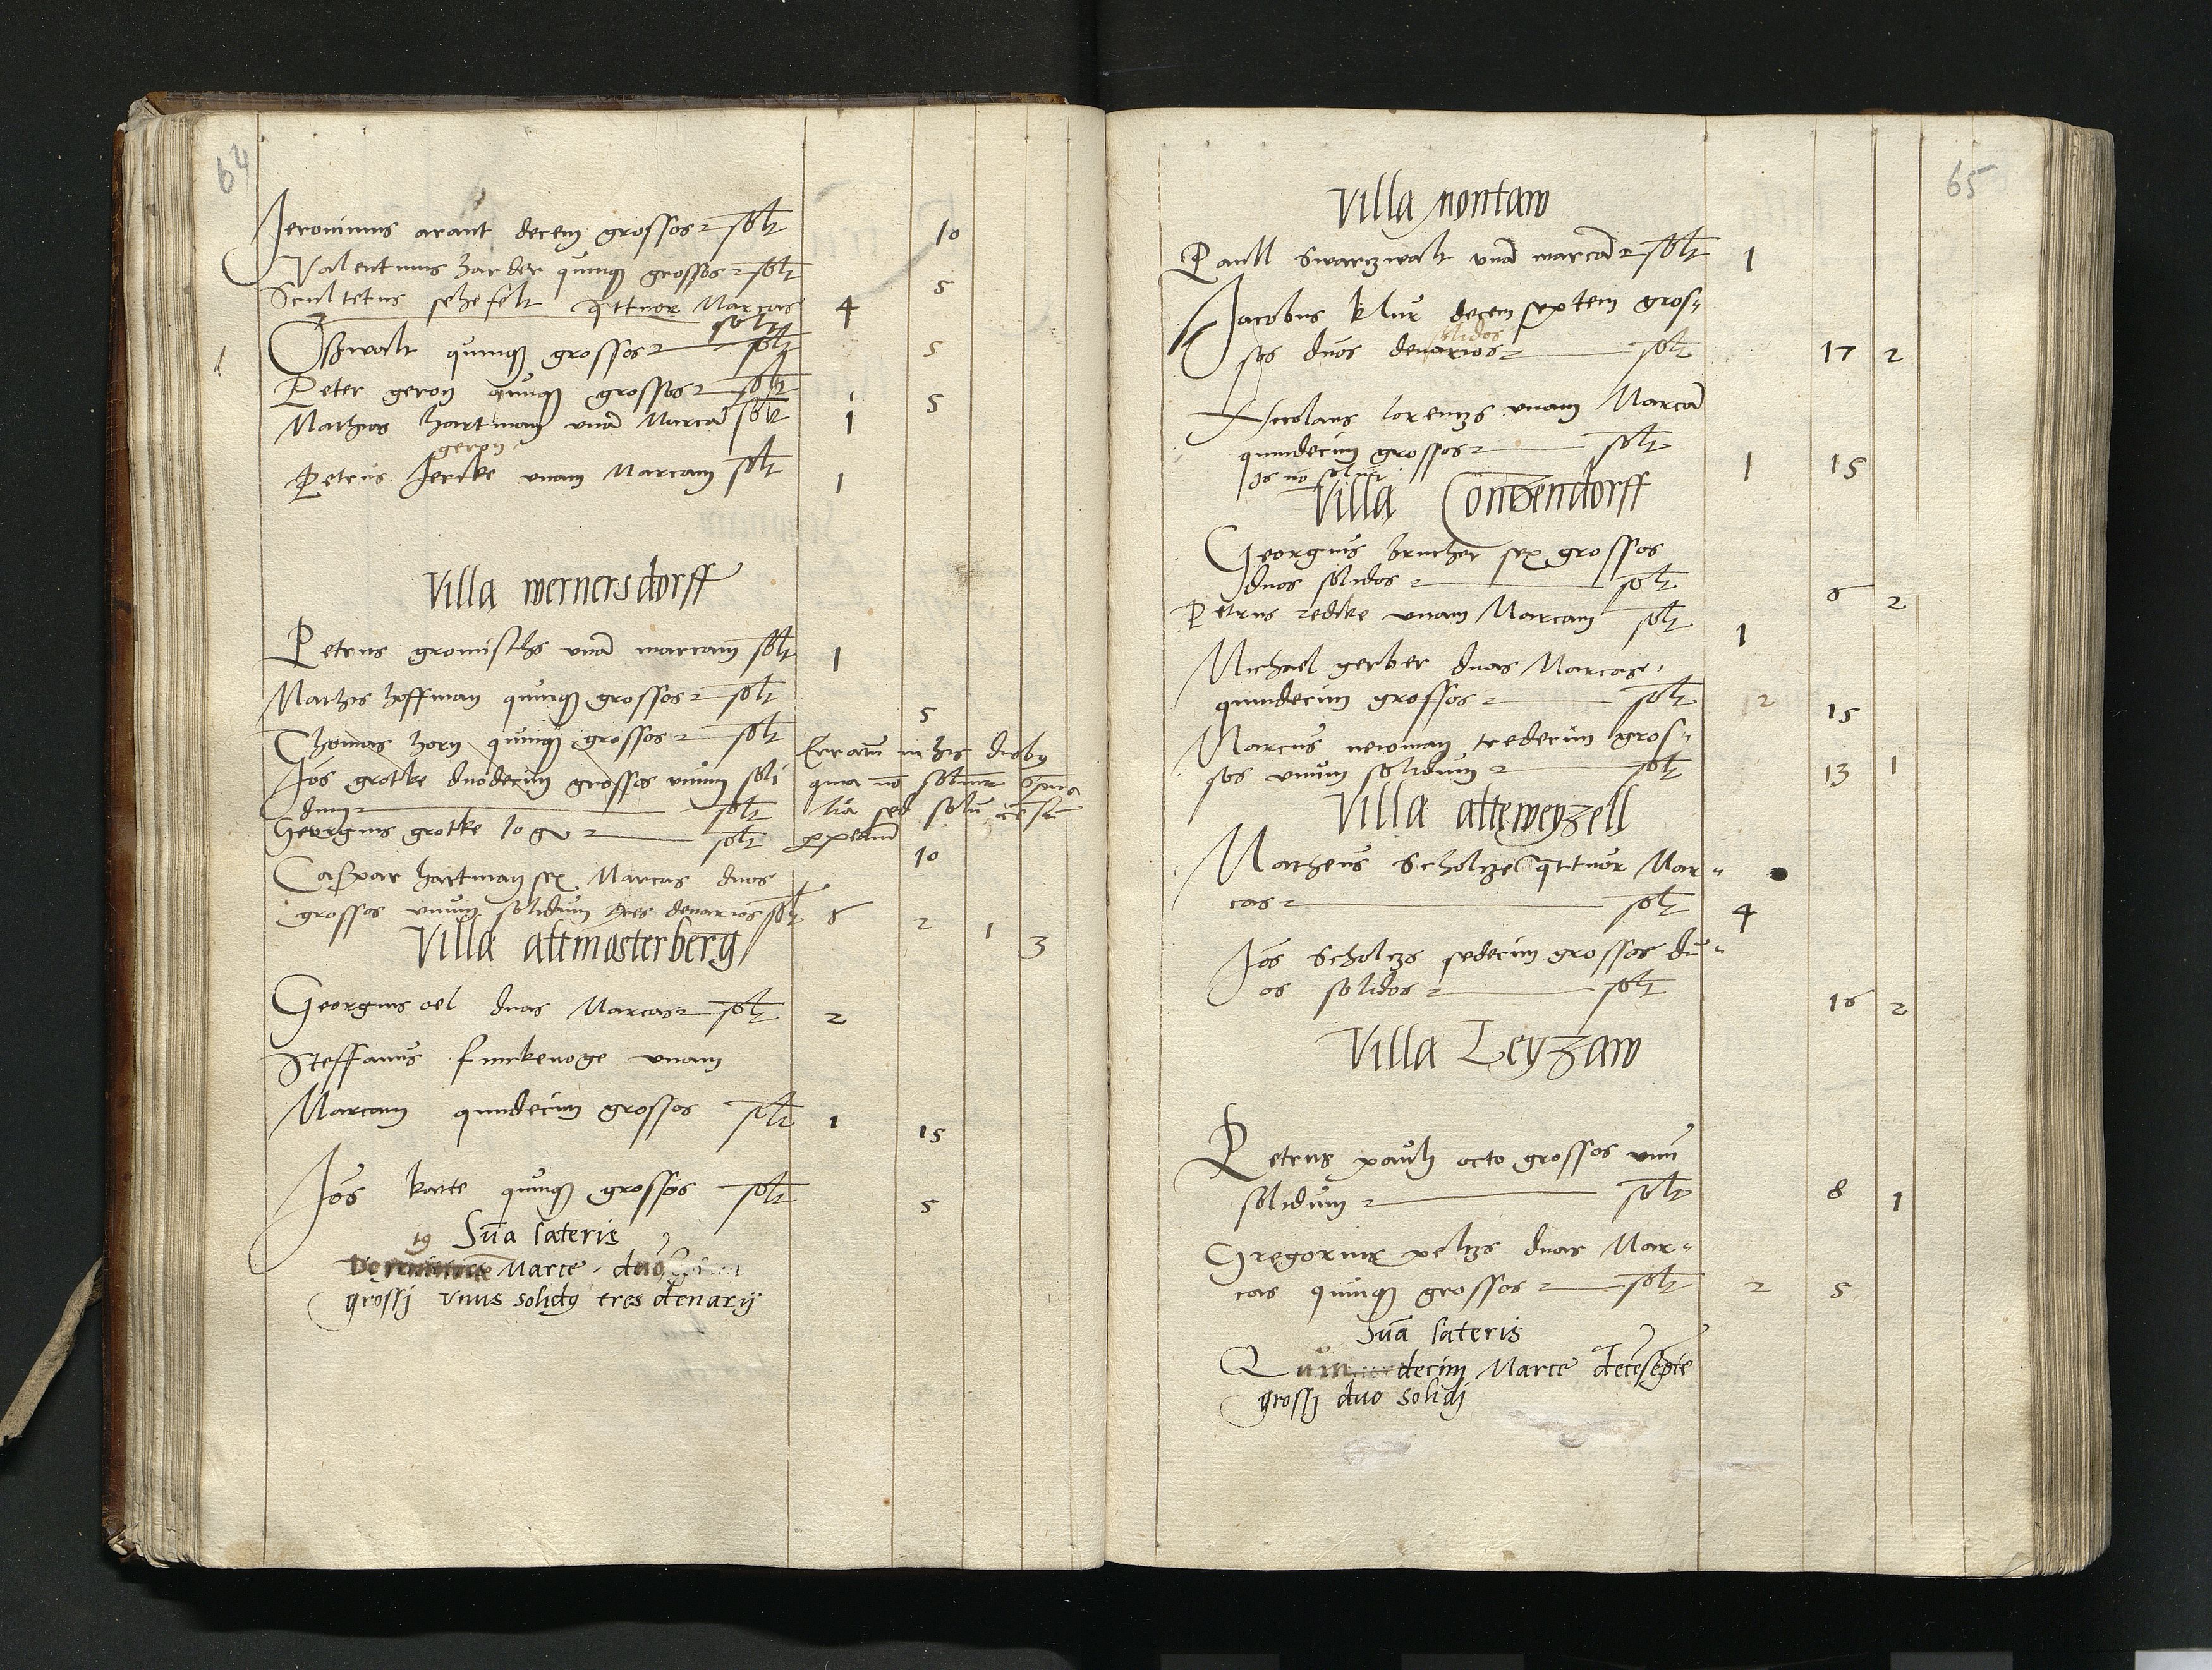 64
Jeronimus arant decem grossos solt 10
Valentinus harder quinqz grossos solt 5
Scultetus schefelt qttuor Marcas 4
solt
Oszwalt quinqz grossos solt 5
Peter geron quinqz grossos solt 5
Mathias hartman vnā Marcā solt 1
geron
Petrus Jericke vnam Marcam solt 1
Villa wernersdorff
Petrus gromischs vnā marcam solt 1
Mathis hoffman quinqz grossos solt 5
Thomas horn quinqz grossos solt
Jos grotke duodecim grossos vnum soli
dum solt
Erratū in his
qua nō
lia sed
Georgius grotke 10 solt 10
Caspar hartman sex Marcas duos
grossos vnum solidum tres denarios solt 6 2 1 3
Villa altmosterberg
Georgius oel duas Marcas solt 2
Steffanus funckenoge vnam
Marcam quindecim grossos solt 1 15
Jos katte quinqz grossos solt 5
Sūa lateris
19
Marce duo
grossj vnus solidq tres denarij
65
Villa montaw
Paull Swarczwalt vnā marcā solt 1
Jacobus klur decem septem gros
solidos
sos duos denarios solt 17 2
Nicolaus lorentzs vnam Marcā
quindecim grossos solt 1 15
Is nō soluit
Villa Contzendorff
Georgius brucher sex grossos
duos solidos solt 6 2
Petrus redike vnam Marcam solt 1
Michael gerber duas Marcas
quindecim grossos solt 2 15
Marcus newman tredecim gros
sos vnum solidum solt 13 1
Villa alteweyzell
Matheus Scholtze qttuor Mar
cas solt 4
Jos Scholczs sedecim grossos du
os solidos solt 16 2
Villa Leyzaw
Petrus pauls octo grossos vnū
solidum solt 8 1
Gregorius peltzs duas Mar
cas quinqz grossos solt 2 5
Sūa lateris
decim Marce deceseptē
grossj duo solidj